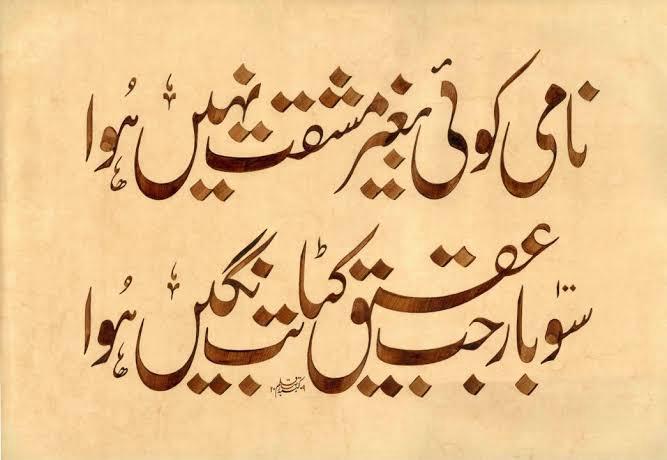 نامی کوئی بغیر مشقت نہیں ہُوا
سو بار جب عقیق کٹا تب نگیں ہُوا